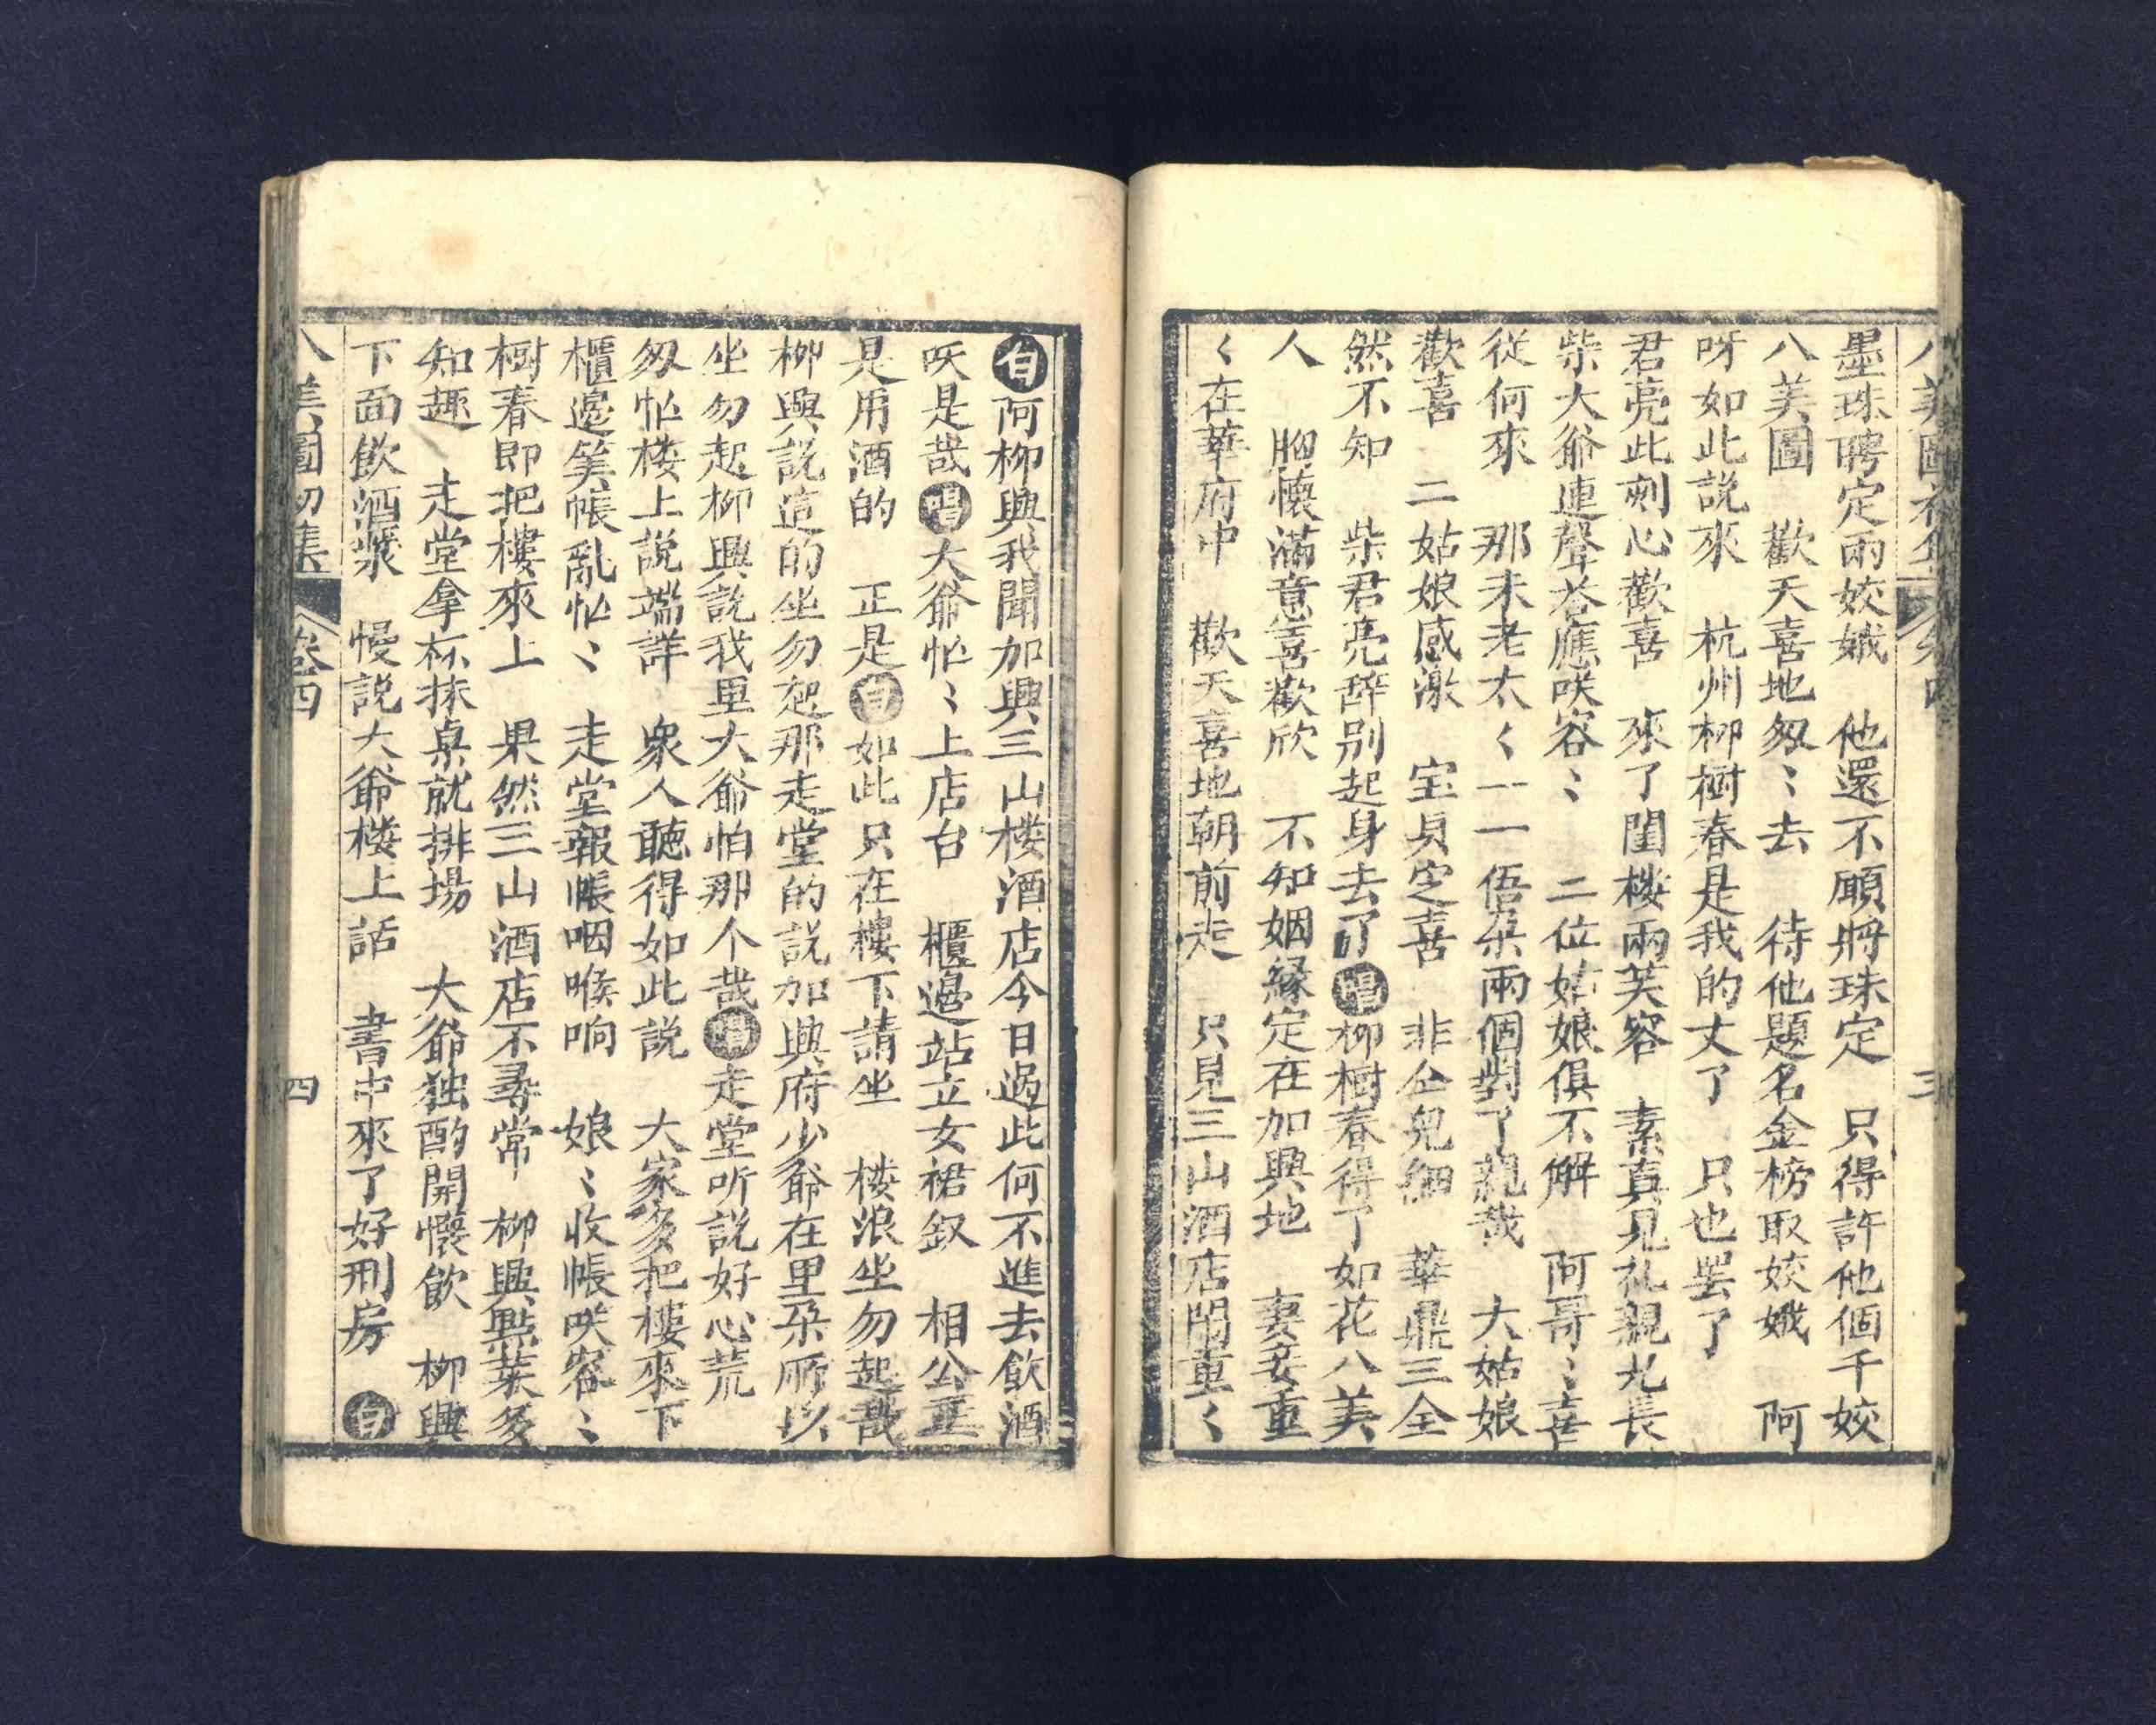 墨珠聘定兩姣娥　他還不願將珠定　只得許他個千姣
八美圖　歡天喜地匆〻去　待他題名金榜取姣娥　阿
呀如此説來　杭州柳樹春是我的丈了　只也罢了
君亮此刻心歡喜　來了閨楼兩芙容　素真見礼親兄長
柴大爺連聲荅應咲容〻　二位姑娘俱不觧　阿哥〻喜
従何來　那未老太〱一一伍朶兩個對了親哉　大姑娘
歡喜　二姑娘感激　宝貞定喜　非仝兒細　華鼎三全
然不知　柴君亮辞别起身去了唱柳樹春得了如花八美
人　胸懷滿意喜歡欣　不知姻緣定在加興地　妻妾重
〱在華府中　歡天喜地朝前走　只見三山酒店閙重〱
三
白阿柳興我聞加興三山楼酒店今日過此何不進去飲酒
呅是哉唱大爺忙〻上店台　櫃邉站立女裙釵　相公
是用酒的　正是白如此只在樓下請坐　楼浪坐勿起哉
柳興説這的坐勿起那走堂的説加興府少爺在里朶所以
坐勿起柳興説我里大爺怕那个哉唱走堂听説好心荒
匆忙楼上説端詳　衆人聽得如此説　大家多把樓來下
櫃邉筭帳亂忙〻　走堂報帳咽喉响　娘〻收帳咲容〻
樹春即把樓來上　果然三山酒店不尋常　柳興㸃菜多
知趣　走堂拿杯抹桌就排場　大爺独酌開懷飲　柳興
下面飲酒漿　慢説大爺楼上話　書中來了好刑房　白
八美圖初集　卷四　四